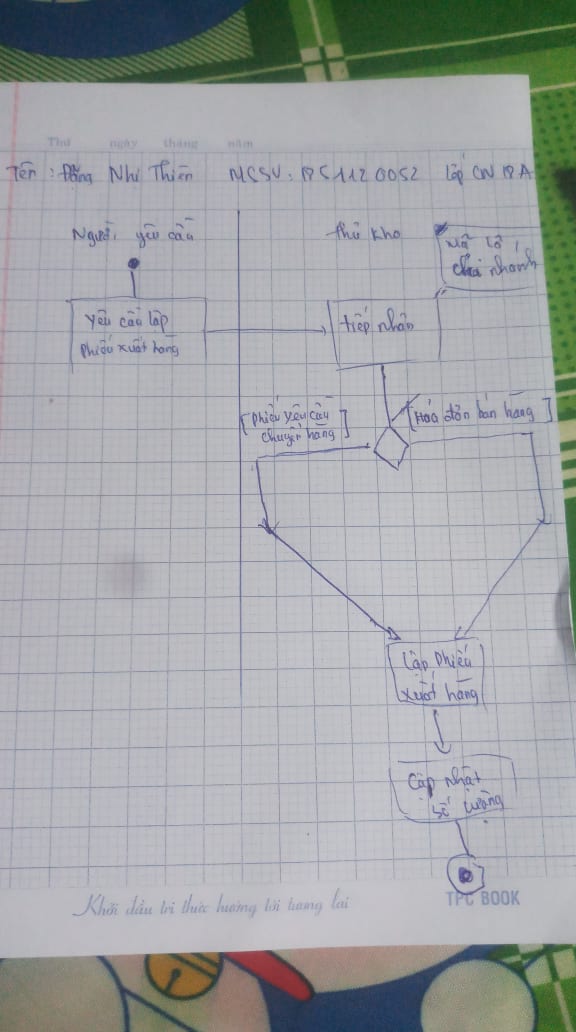 Thứ ngày tháng năm
Tên : Đặng Nhi Thiên MSSV: 1751120052 lớp CN17A
Người yêu cầu
thủ kho
chi nhánh
yêu cầu lập
phiếu xuất hàng
tiếp nhận
[Phiếu yêu cầu
chuyển hàng]
[Hóa đơn bán hàng]
Lập phiếu
xuất hàng
Cập nhật
số lượng
Khởi đầu tri thức hướng tới tương lai
TPC BOOK